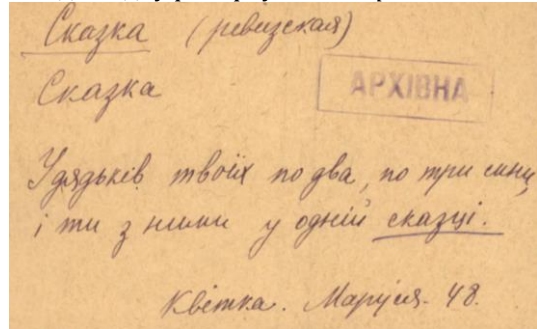 Сказка (ревизская)
Сказка
АРХІВНА
У дядьків твоїх по два, по три сини,
і ти з ними у одній сказці.
Квітка. Маруся. 48.